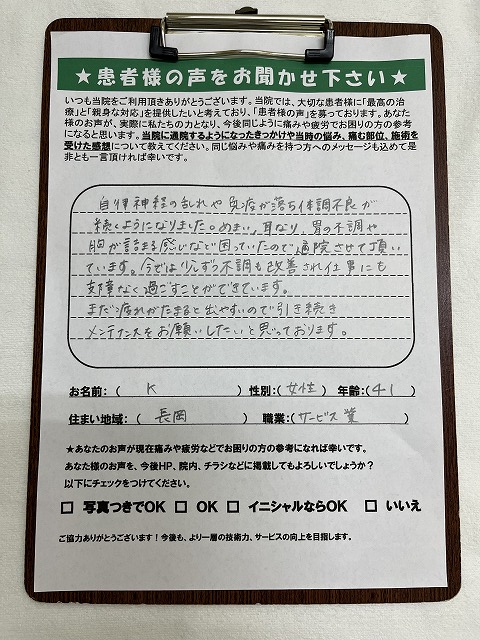 ★患者様の声をお聞かせ下さい★
いつも当院をご利用頂きありがとうございます。当院では、大切な患者様に「最高の治
療」と「親身な対応」を提供したいと考えており、「患者様の声」を募っております。あなた
様のお声が、実際に私たちの力となり、今後同じように痛みや疲労でお困りの方の参考
になると思います。当院に通院するようになったきっかけや当時の悩み、痛む部位、施術を
受けた感想について教えてください。同じ悩みや痛みを持つ方へのメッセージも込めて是
非とも一言頂ければ幸いです。
自律神経の乱れや免疫が落ち体調不良が
続くようになりました。めまい、耳なり、胃の不調や
胸が詰まる感じなど困っていたので通院させて頂い
ています。今では少しずつ不調も改善され仕事にも
支障なく過ごすことができています。
まだ疲れがたまると出やすいので引き続き
メンテナンスをお願いしたいと思っております。
お名前:( K ) 性別:(女性) 年齢:(41)
住まい地域:( 長岡 ) 職業:(サービス業)
★あなたのお声が現在痛みや疲労などでお困りの方の参考になれば幸いです。
あなた様のお声を、今後HP、院内、チラシなどに掲載してもよろしいでしょうか?
以下にチェックをつけてください。
□ 写真つきでOK □ OK □ イニシャルならOK □ いいえ
ご協力ありがとうございます!今後も、より一層の技術力、サービスの向上を目指します。